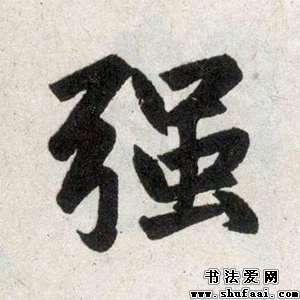 强
书法爱网
www.shufaai.com